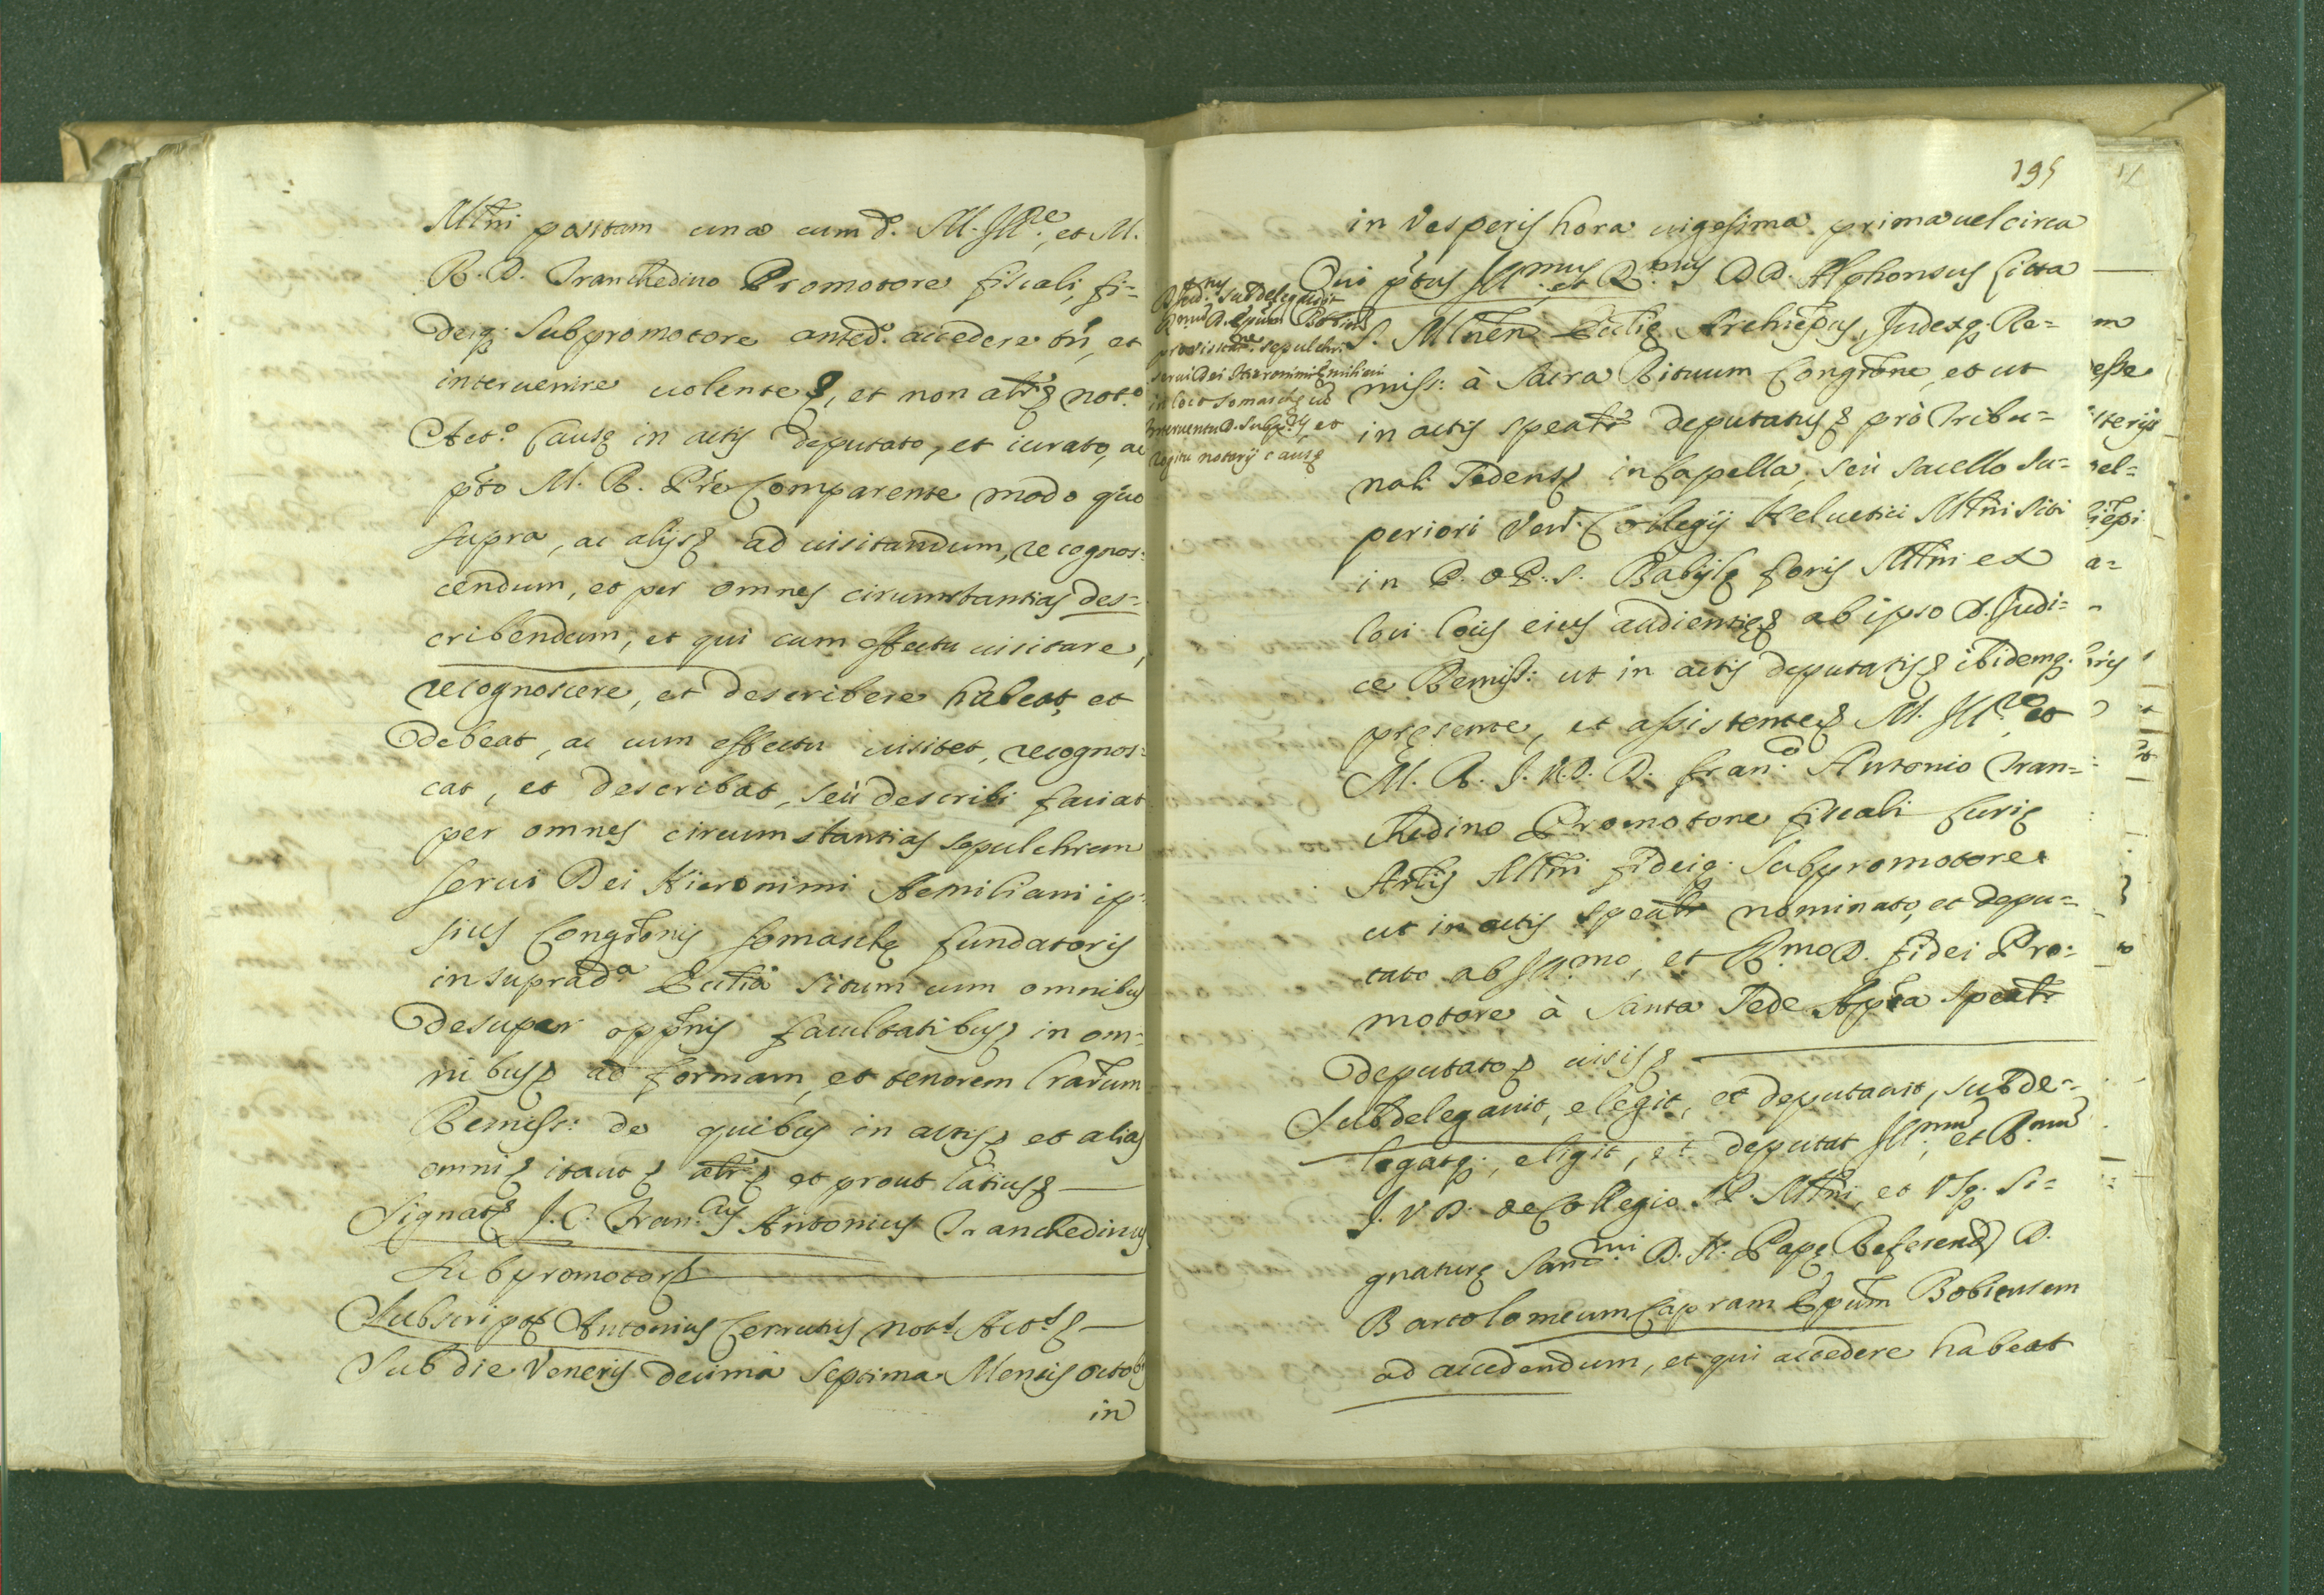 Mtni positam una cum d. M. Ill.re, et M.
R. D. Tranchedino Promotore fiscali, fi=
deiq; Subpromotore anted.o accedere tn, et
intervenire volente &, et non alr & Not.o
Act.o Causę in actis deputato, et iurato, ac
pto M. R. Pre Comparente modo quo
supra, ac alijs & ad visitandum, recognos=
cendum, et per omnes circumstantias des=
cribendum, et qui cum effectu visitare,
recognoscere, et describere habeat, et
debeat, ac cum effectu visitet, recognos=
cat, et describat, seù describi faciat
per omnes circumstantias sepulchrum
servi Dei Hieronimi Aemiliani ip=
sius Congtonis Somaschę fundatoris
in suprad.a Ecclia situm cum omnibus
desuper opptnis facultatibus & in om=
nibus & ad formam, et tenorem lrarum
Remiss: de quibus in actis & et alias
omni & itaut & alr & et prout latius &
Signat & J. C. Fran.cus Antonius Tranchedinus
Subpromotor &
Subscript & Antonius Cerrutus Not.s Act.s &
Sub die Veneris decima septima Mensis octob.s
in
195
in Vesperis hora vigesima prima vel circa
Qui ptus Ill.mus, et R.mus D D. Alphonsus Litta
S. Mlnen Ecclię Archiepus, Judexq; Re=
miss: à Sacra Rituum Congtone, et ut
in actis spealr deputatus & prò Tribu=
nali Sedens in Capella, seù sacello su=
periori Ven. Collegij Helvetici Mtni siti
in P. O. P. S. Babilę foris Mtni ex
loci locis eius audientię & ab ipso D. Judi=
ce Remiss: ut in actis deputatis & ibidemq;
presente, et assistente & M. Ill.re et
M. R. J. V. D. D. Fran.co Antonio Tran=
chedino Promotore fiscali Curię
Archlis Mtni fideiq; Subpromotore
ut in actis spealr nominato, et depu=
tato ab Ill.mo, et R.mo D. fidei Pro=
motore à Santa Sede Aplca spealr
deputato & visis &
Subdelegavit, elegit, et deputavit, subde=
legatq;, eligit, et deputat Ill.mum, et R.mum
J. V. D. de Collegio Mtni, et Vsq. Si=
gnaturę Sanc.mi D. N. Papę Referend D.
Bartolomeum Capram Epum Bobiensem
ad accedendum, et qui accedere habeat
D. Jud. subdelegavit
D. Epum Bobiens
pro visitat.ne sepulchr.
servi Dei Hieronimi Ęmiliani
in loco Somaschę cu
interventu D. Subp.ris, et
rogitu notarij causę